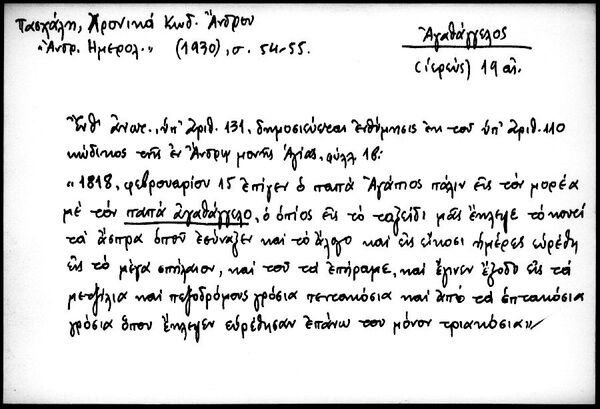 Πασχάλη, Χρονικά Κωδ. Ἄνδρου
"Ἀνδρ. Ἡμερολ." (1930), σ. 54-55.
Ἀγαθάγγελος
(ἱερεὺς) 19 αἰ.
Ἔνθ' ἀνωτ., ὑπ' ἀριθ. 131, δημοσιεύεται ἐνθύμησις ἐκ τοῦ ὑπ' ἀριθ. 110
κώδικος τῆς ἐν Ἄνδρῳ μονῆς Ἁγίας, φύλλ 1β:
"1818, φεβρουαρίου 15 ἐπίγεν ὁ παπὰ Ἀγάπιος πάλιν εἰς τὸν μορέα
μὲ τὸν παπὰ ἀγαθάγγελο, ὁ ὁπίος εἰς τὸ ταξεῖδι μᾶς ἔκλεψε τὸ κουτί
τὰ ἄσπρα ὁποῦ ἐσύναξεν καὶ τὸ ἄλογο καὶ εἰς εἴκοσι ἡμέρες εὑρέθη
εἰς τὸ μέγα σπήλαιον, καὶ τοῦ τὰ ἐπήραμε, καὶ ἔγινεν ἔξοδο εἰς τὰ
μετζίλια καὶ πεζοδρόμους γρόσια πεντακόσια καὶ ἀπὸ τὰ ἑπτακόσια
γρόσια ὅπου ἔκλεψεν εὑρέθησαν ἐπάνω του μόνον τριακόσια"